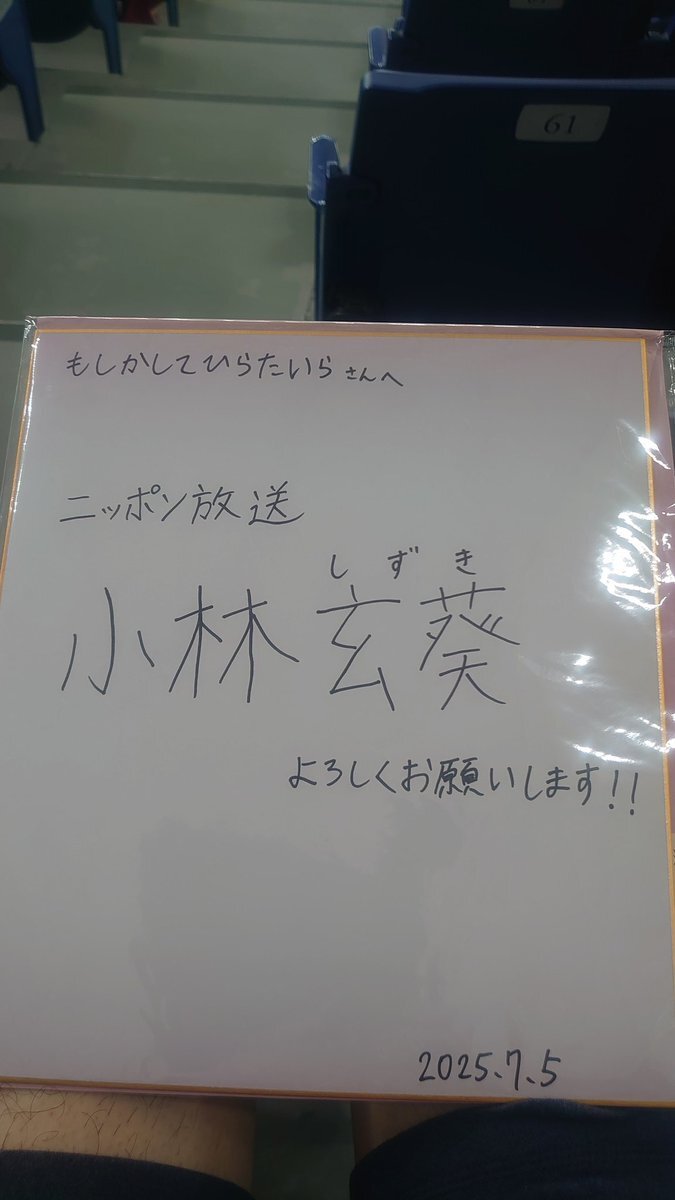 61
もしかしてひらたいらさんへ
ニッポン放送
しずき
小林玄葵
よろしくお願いします!!
2025.7.5